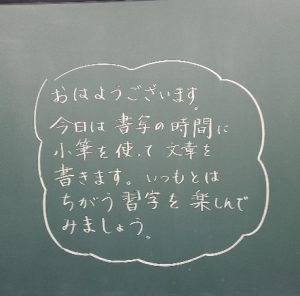 おはようございます。
今日は書写の時間に
小筆を使って文章を
書きます。いつもとは
ちがう習字を楽しんで
みましょう。